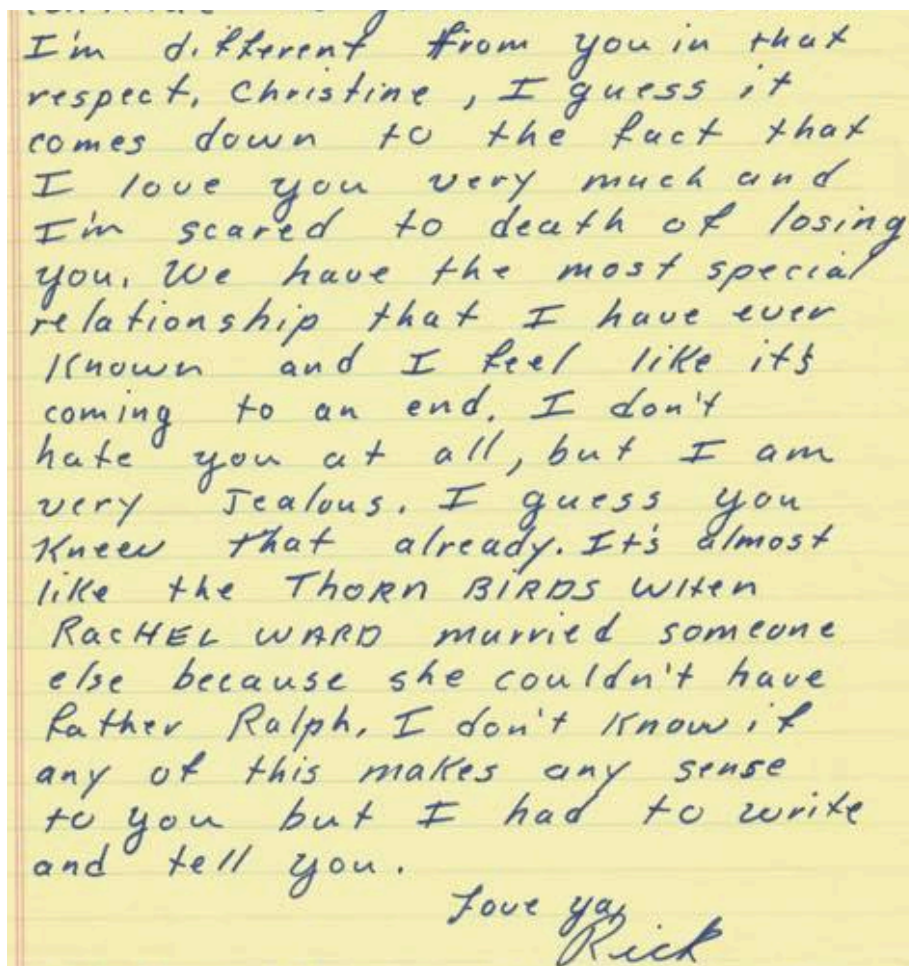 I'm different from you in that
respect, Christine, I guess it
comes down to the fact that
I love you very much and
I'm scared to death of losing
you. We have the most special
relationship that I have ever
Known and I feel like it's
coming to an end. I don't
hate you at all, but I am
very Jealous. I guess you
Knew that already. It's almost
like the THORN BIRDS WHEN
RACHEL WARD married someone
else because she couldn't have
father Ralph. I don't Know if
any of this makes any sense
to you but I had to write
and tell you.
Love ya,
Rick